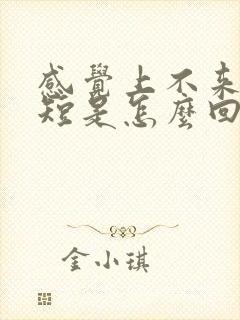 感覺上不來
短是怎麼回
金小琪